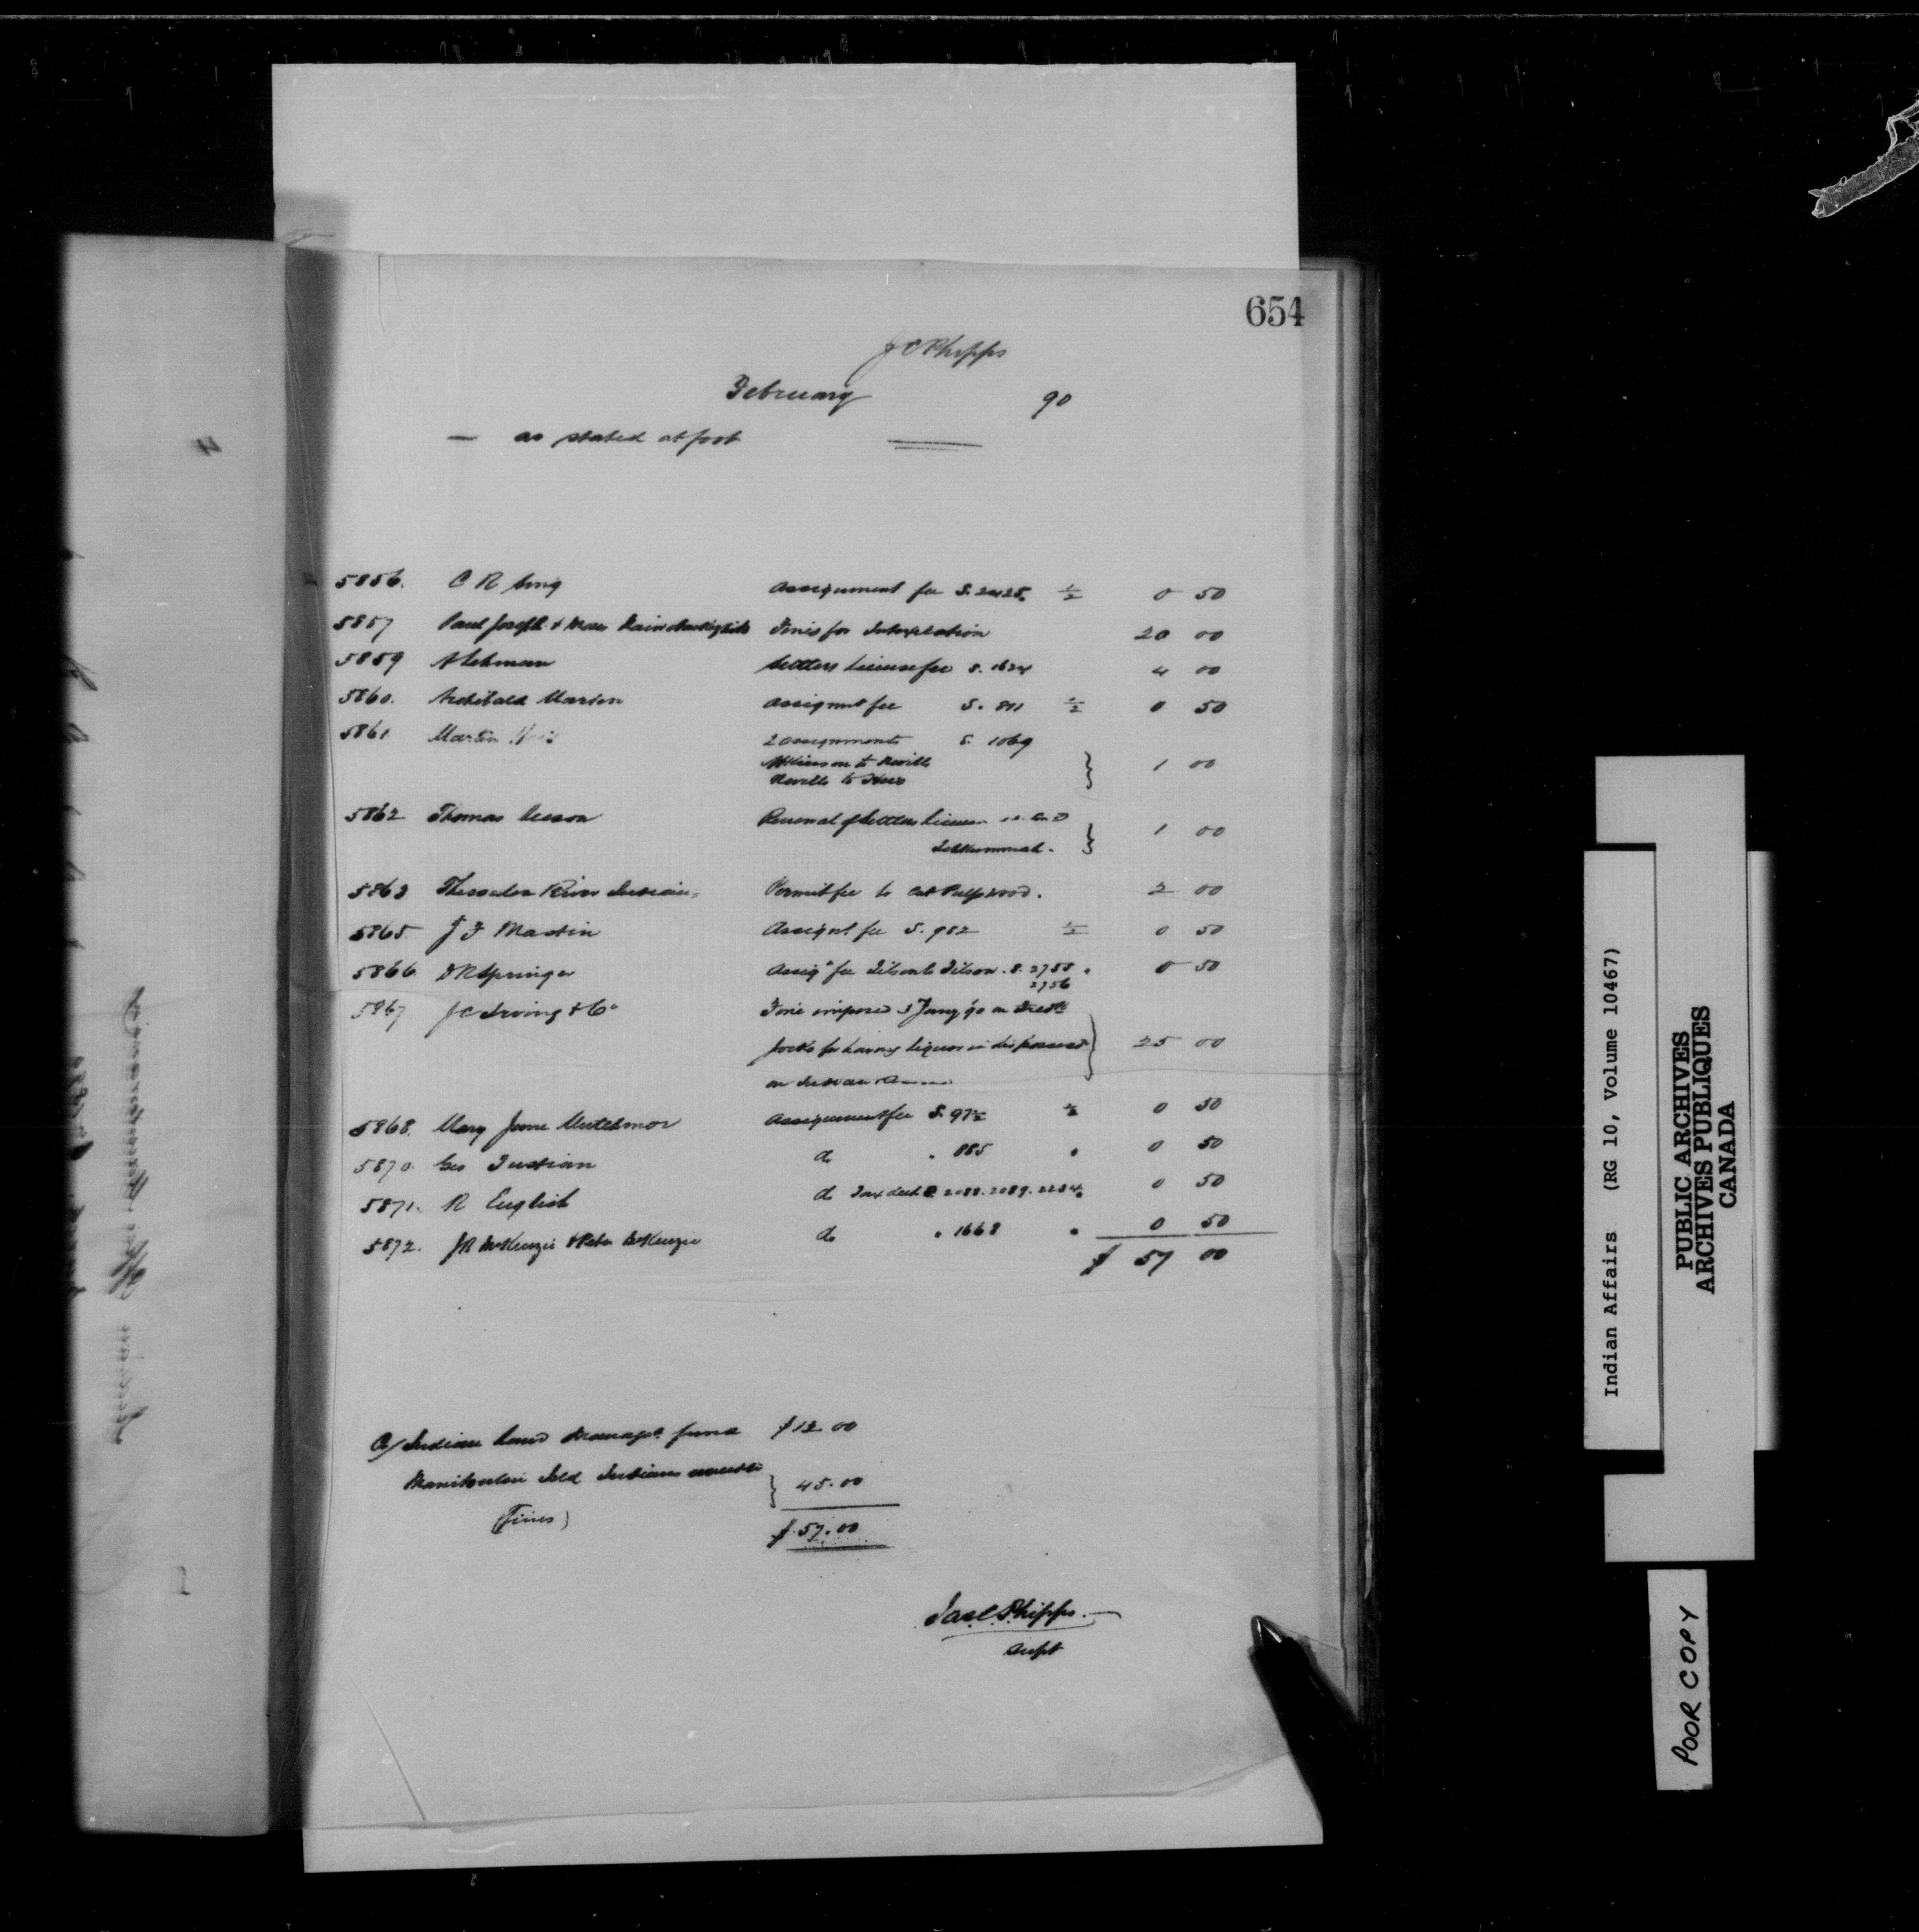 654
J C Phipps
February 90
— as stated at foot
5856. C R Assignment fee S. 2425. ½ 0 50
5857 Paul Joseph & Moses Fines for Intoxication 20 00
5859 A Lehman Settlers License fee S. 1624 4 00
5860. Archibald Marten assignmt fee S. 811 ½ 0 50
5861. Martin 2 assignments S. 1069
Atkinson to Neville
Neville to 1 00
5862 Thomas Renewal of Settlers License
Tehkummah. 1 00
5863 Thessalon River Indians Permit fee to cut Pulpwood. 2 00
5865. J F Martin Assignt. fee S. 982 ½ 0 50
5866. D R Springer Assigt fee Tilson to Tilson. S. 2755 " 0 50
2756
5867 J C Irving & Co Fine imposed Jany 90 on
for having liquor in his possession 25 00
on Indian
5868. Mary Jane Mutchmor Assignment fee S. 97½ ½ 0 50
5870. Geo do " 885 " 0 50
5871. R English do Tax deed S. 2088. 2089. 0 50
5872. J R McKenzie & Peter McKenzie do " 1668 " 0 50
$ 57 00
Cr/ Indian Land Managt. fund $12.00
Manitoulin Isld Indians
45.00
(Fines)
$.57.00
Jas. C. Phipps.
Supt
Indian Affairs (RG 10, Volume 10467)
PUBLIC ARCHIVES
ARCHIVES PUBLIQUES
CANADA
POOR COPY